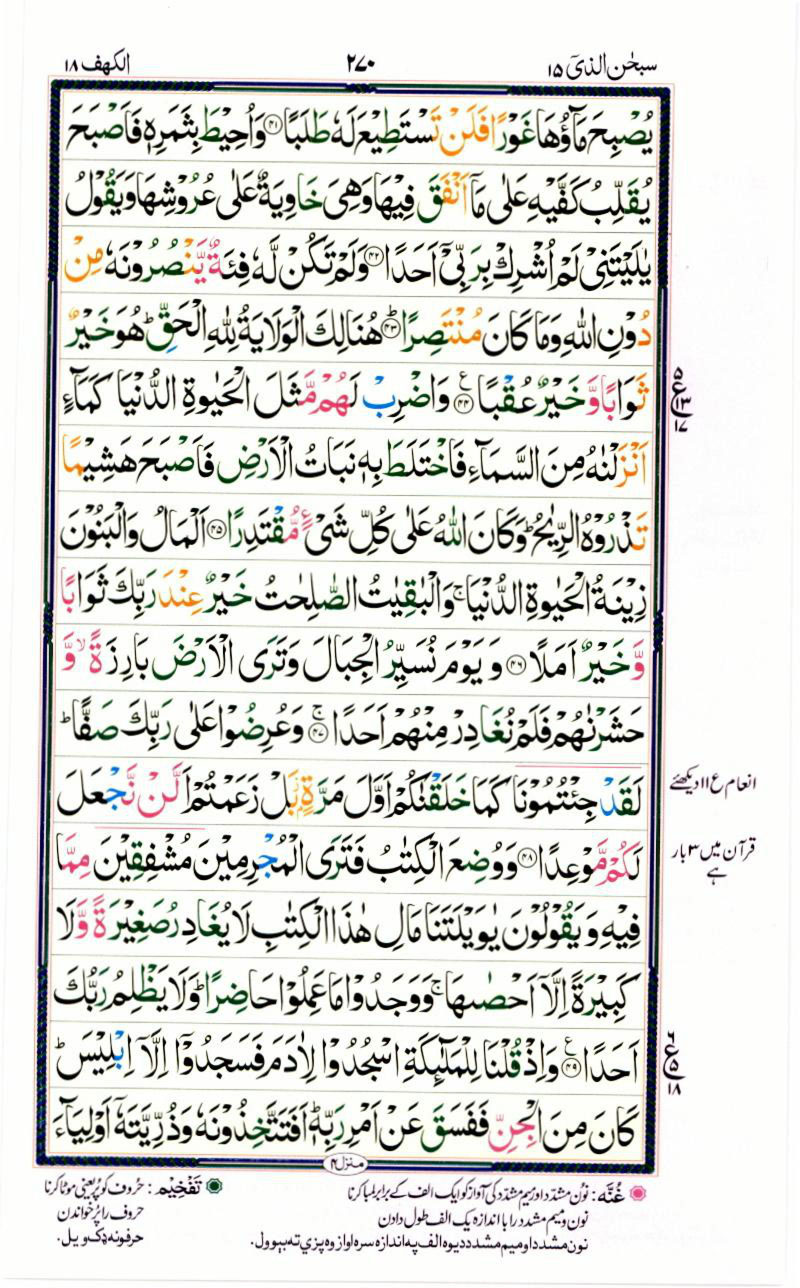 سبحٰن الذیٓ ۱۵
۲۷۰
الکہف ۱۸
يُصْبِحَ مَآؤُهَا غَوْرًا فَلَنْ تَسْتَطِيْعَ لَهٗ طَلَبًا ﴿۴۱﴾ وَاُحِيْطَ بِثَمَرِهٖ فَاَصْبَحَ
يُقَلِّبُ كَفَّيْهِ عَلٰى مَآ اَنْفَقَ فِيْهَا وَهِىَ خَاوِيَةٌ عَلٰى عُرُوْشِهَا وَيَقُوْلُ
يٰلَيْتَنِىْ لَمْ اُشْرِكْ بِرَبِّىْٓ اَحَدًا ﴿۴۲﴾ وَلَمْ تَكُنْ لَّهٗ فِئَةٌ يَّنْصُرُوْنَهٗ مِنْ
دُوْنِ اللّٰهِ وَمَا كَانَ مُنْتَصِرًا ﴿۴۳﴾ؕ هُنَالِكَ الْوَلَايَةُ لِلّٰهِ الْحَقِّؕ هُوَ خَيْرٌ
ثَوَابًا وَّخَيْرٌ عُقْبًا ﴿۴۴﴾ع وَاضْرِبْ لَهُمْ مَّثَلَ الْحَيٰوةِ الدُّنْيَا كَمَآءٍ
۵
ع
۱۳
۱۷
اَنْزَلْنٰهُ مِنَ السَّمَآءِ فَاخْتَلَطَ بِهٖ نَبَاتُ الْاَرْضِ فَاَصْبَحَ هَشِيْمًا
تَذْرُوْهُ الرِّيٰحُؕ وَكَانَ اللّٰهُ عَلٰى كُلِّ شَىْءٍ مُّقْتَدِرًا ﴿۴۵﴾ اَلْمَالُ وَالْبَنُوْنَ
زِيْنَةُ الْحَيٰوةِ الدُّنْيَاۚ وَالْبٰقِيٰتُ الصّٰلِحٰتُ خَيْرٌ عِنْدَ رَبِّكَ ثَوَابًا
وَّخَيْرٌ اَمَلًا ﴿۴۶﴾ وَيَوْمَ نُسَيِّرُ الْجِبَالَ وَتَرَى الْاَرْضَ بَارِزَةًۙ وَّ
حَشَرْنٰهُمْ فَلَمْ نُغَادِرْ مِنْهُمْ اَحَدًا ﴿۴۷﴾ۚ وَعُرِضُوْا عَلٰى رَبِّكَ صَفًّاؕ
لَقَدْ جِئْتُمُوْنَا كَمَا خَلَقْنٰكُمْ اَوَّلَ مَرَّةٍۭ بَلْ زَعَمْتُمْ اَلَّنْ نَّجْعَلَ
انعام ع ۱۱ دیکھئے
لَكُمْ مَّوْعِدًا ﴿۴۸﴾ وَوُضِعَ الْكِتٰبُ فَتَرَى الْمُجْرِمِيْنَ مُشْفِقِيْنَ مِمَّا
قرآن میں ۳ بار
ہے
فِيْهِ وَيَقُوْلُوْنَ يٰوَيْلَتَنَا مَالِ هٰذَا الْكِتٰبِ لَا يُغَادِرُ صَغِيْرَةً وَّلَا
كَبِيْرَةً اِلَّآ اَحْصٰىهَاۚ وَوَجَدُوْا مَا عَمِلُوْا حَاضِرًاؕ وَلَا يَظْلِمُ رَبُّكَ
اَحَدًا ﴿۴۹﴾ع وَاِذْ قُلْنَا لِلْمَلٰٓئِكَةِ اسْجُدُوْا لِاٰدَمَ فَسَجَدُوْٓا اِلَّآ اِبْلِيْسَؕ
۶
ع
۵
۱۸
كَانَ مِنَ الْجِنِّ فَفَسَقَ عَنْ اَمْرِ رَبِّهٖؕ اَفَتَتَّخِذُوْنَهٗ وَذُرِّيَّتَهٗٓ اَوْلِيَآءَ
منزل ۴
غُنَّه: نون مشدّد اور میم مشدّد کی آواز کو ایک الف کے برابر لمبا کرنا
نون و میم مشدد را با اندازه یک الف طول دادن
نون مشدد او میم مشدد د یوه الف په اندازه سره اواز وه پزې ته بېوول.
تَفْخِيْم: حروف کو پُر یعنی موٹا کرنا
حروف را پُر خواندن
حرفونه ډک ویل.